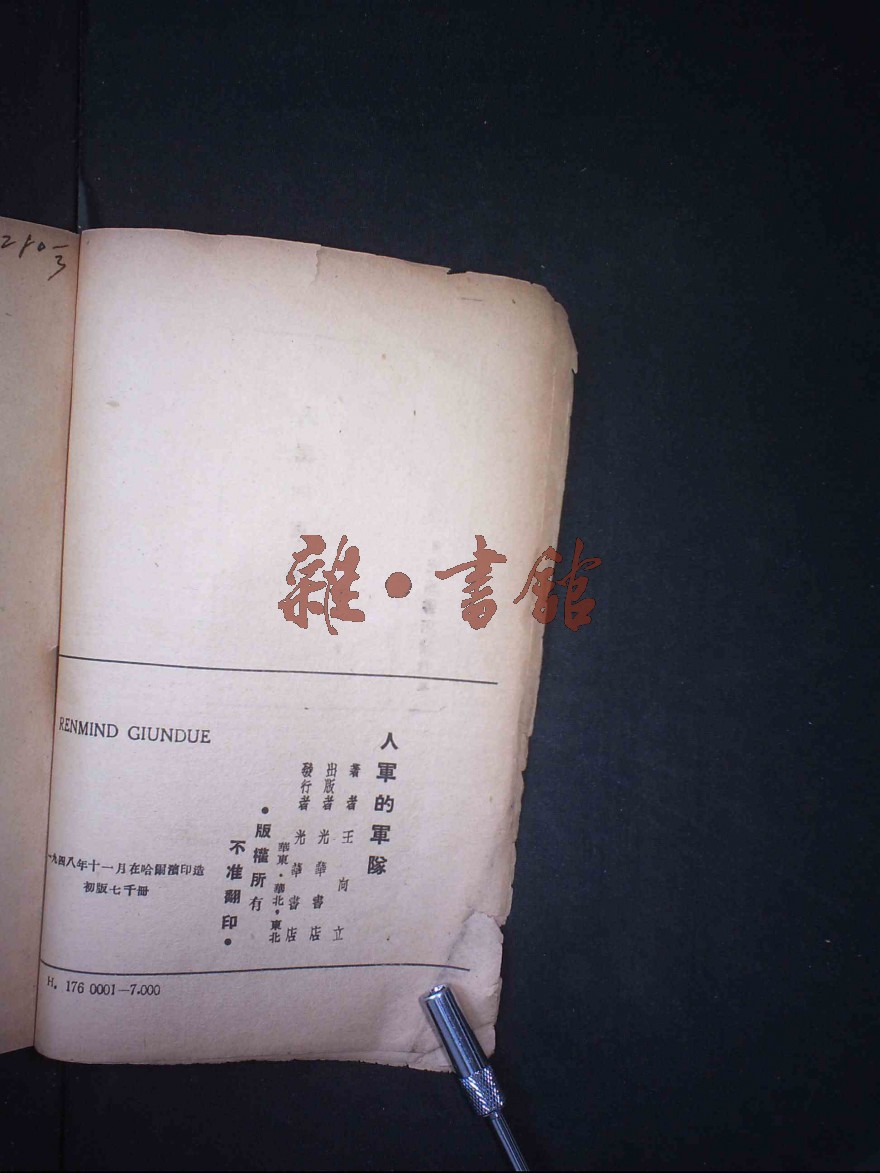 280号
雜·書館
RENMIND GIUNDUE
人軍的軍隊
著者 王向立
出版者 光華書店
發行者 光華書店
華東·華北·東北
•版權所有
不准翻印•
一九四八年十一月在哈爾濱印造
初版七千冊
H. 176 0001—7.000